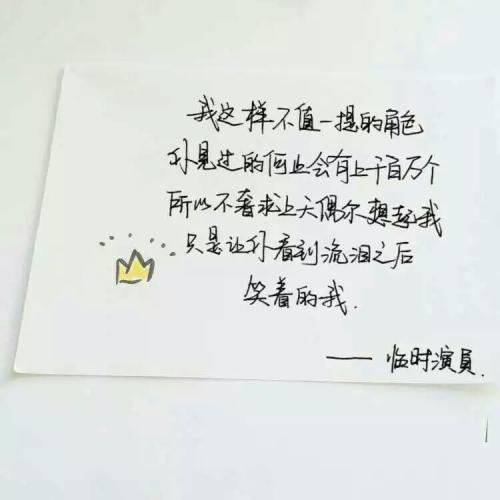 我这样不值一提的角色
你见过的何止会有上千百万个
所以不奢求上天偶尔想起我
只是让你看到流泪之后
笑着的我.
—— 临时演员.